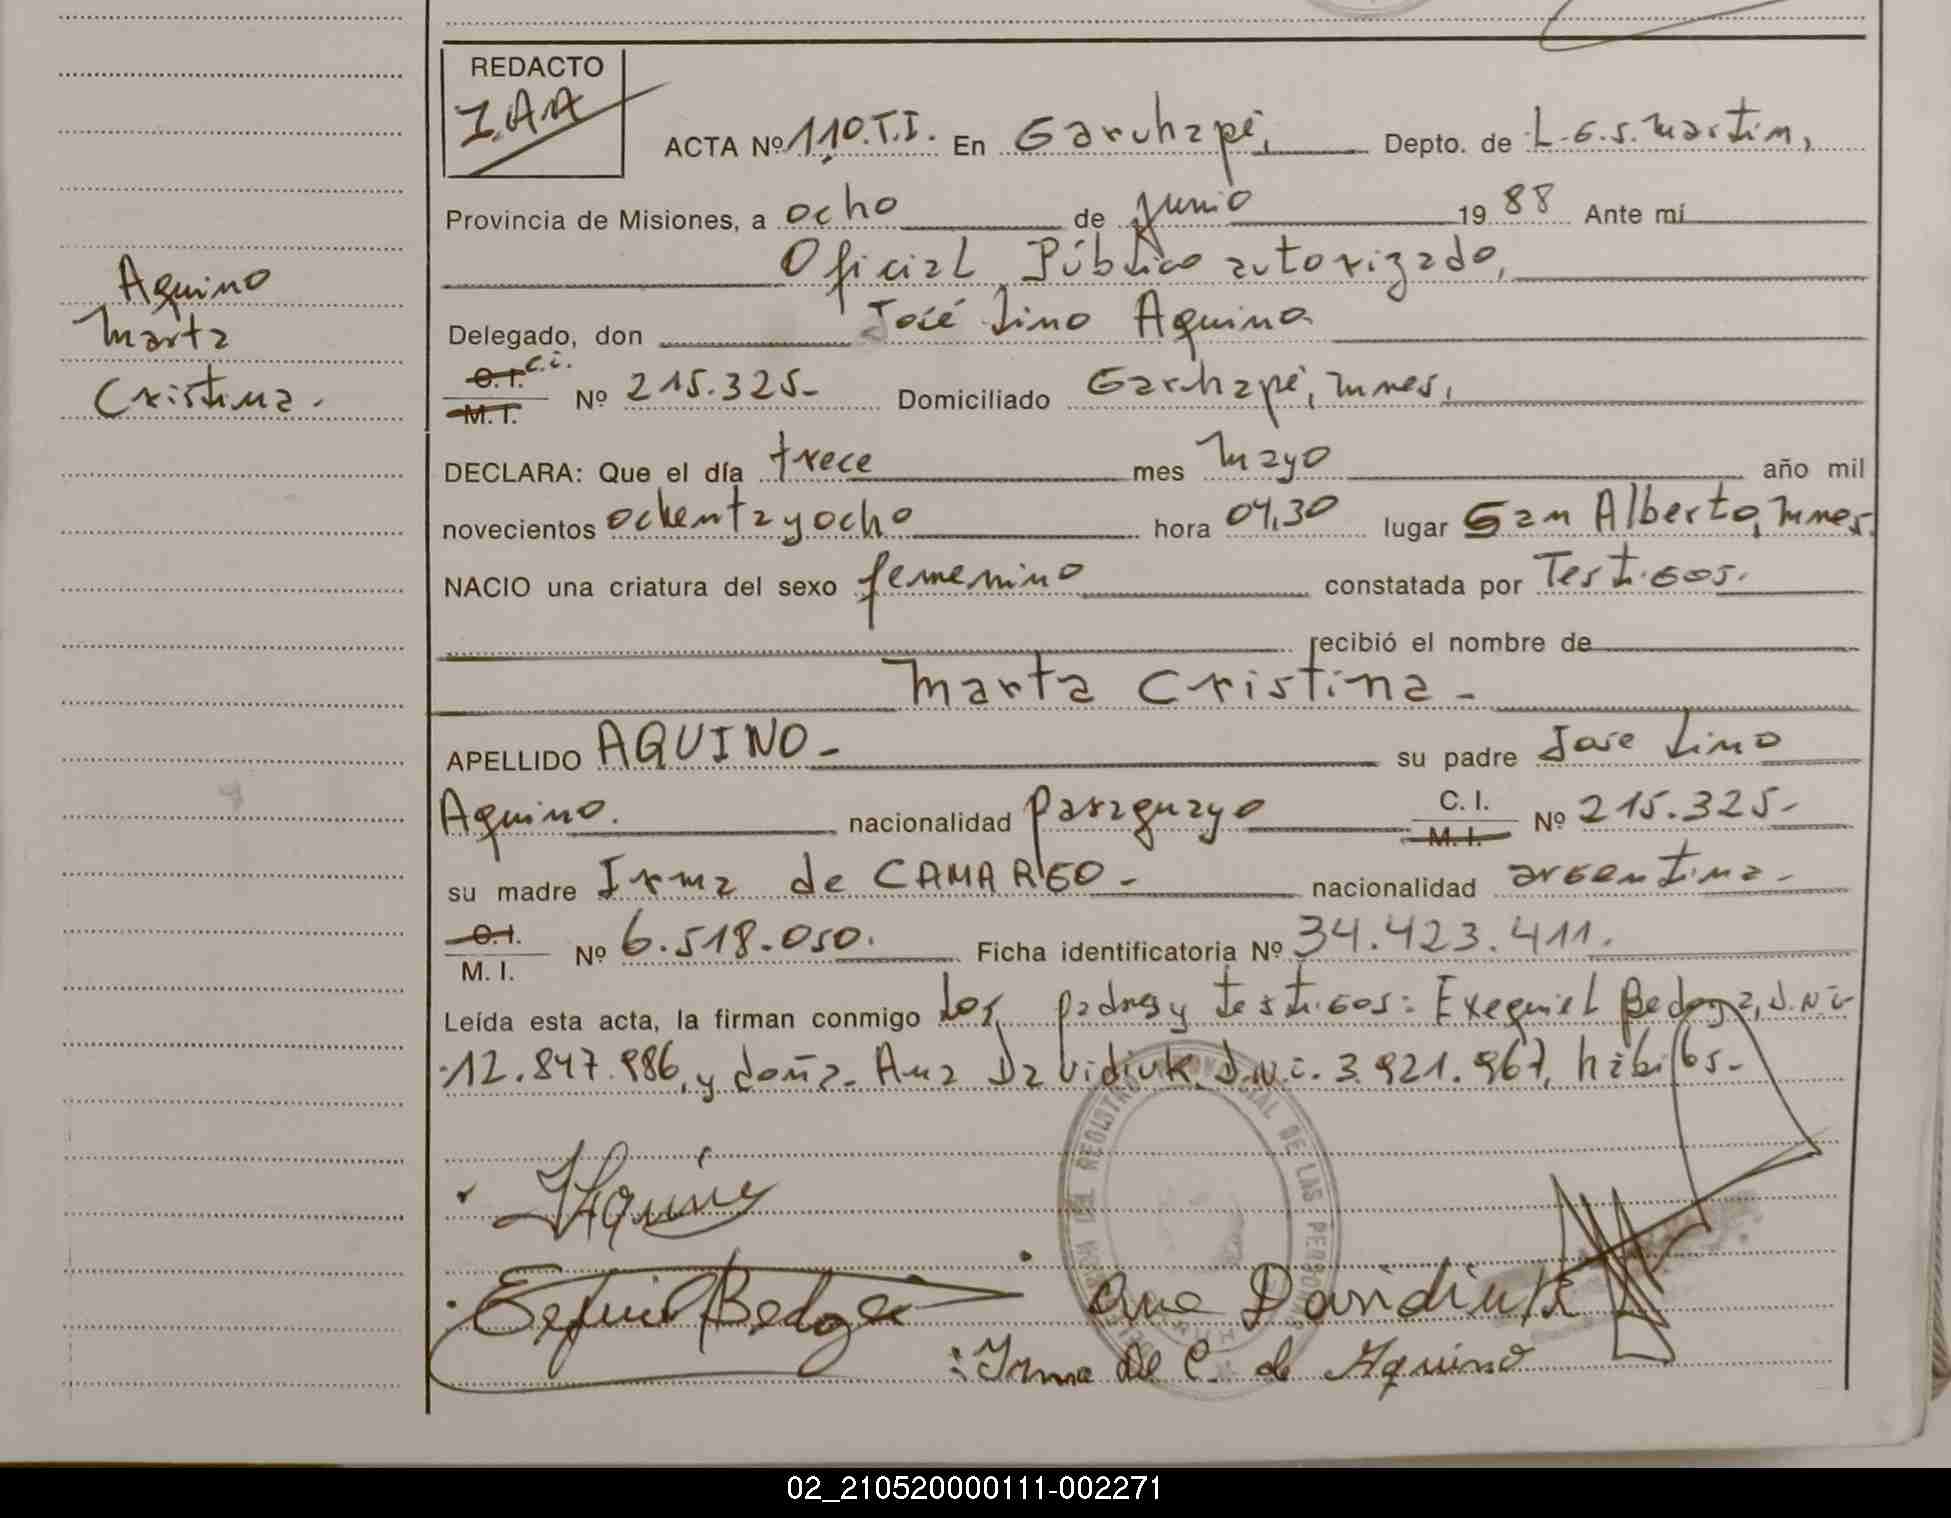 REDACTO
I.A.A
ACTA Nº 110.T.I. En Garuhapé, Depto. de L.G.S.Martin,
Provincia de Misiones, a ocho de junio 19 88 Ante mí
Oficial Público autorizado,
Delegado, don José Lino Aquino
C.I. c.i.
M.I. Nº 215.325- Domiciliado Garhapé, mnes,
Aquino
Marta
Cristina.
DECLARA: Que el día trece mes mayo año mil
novecientos ochenta y ocho hora 04,30 lugar San Alberto, mnes.
NACIO una criatura del sexo femenino constatada por Testigos.
recibió el nombre de
Marta Cristina -
APELLIDO AQUINO - su padre Jose Lino
Aquino. nacionalidad paraguayo C. I. M. I. Nº 215.325-
su madre Irma de CAMARGO - nacionalidad argentina -
C.I.
M. I. Nº 6.518.050. Ficha identificatoria Nº 34.423.411.
Leída esta acta, la firman conmigo los padres y testigos: Exequiel Bedoya, d.n.i-
12.847.986, y doña Ana Davidiuk d.n.i. 3.921.967, hábiles-
Aquino
Bedoya Ana Davidiuk
: Irma De C. de Aquino
REGISTRO PROVINCIAL DE LAS PERSONAS
02_210520000111-002271